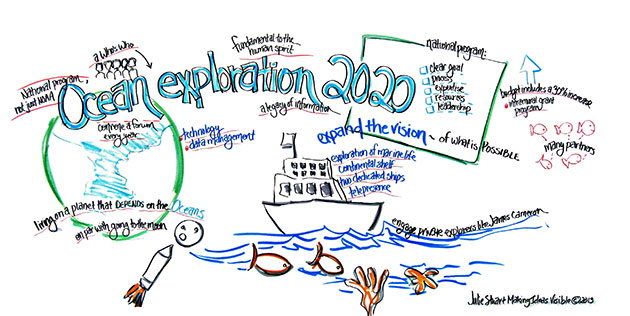 a Who's Who
fundamental to the
human spirit
national program,
not just NOAA
Ocean exploration 2020
national program:
clear goal
process
expertise
resources
leadership
budget includes a 30% increase
extramural grant
program
convene a forum
every year
technology
data management
a legacy of information
expand the vision of what is POSSIBLE
many partners
exploration of marine life
continental shelf
two dedicated ships
telepresence
living on a planet that DEPENDS on the Oceans
on par with going to the moon
engage private explorers like James Cameron
Julie Stuart Making Ideas Visible © 2013